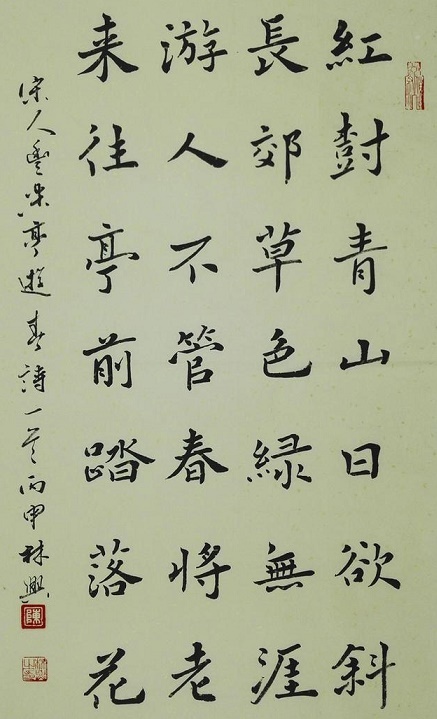 紅樹青山日欲斜
長郊草色緑無涯
游人不管春將老
来往亭前踏落花
宋人豐樂亭遊春詩一首丙申林興
陳